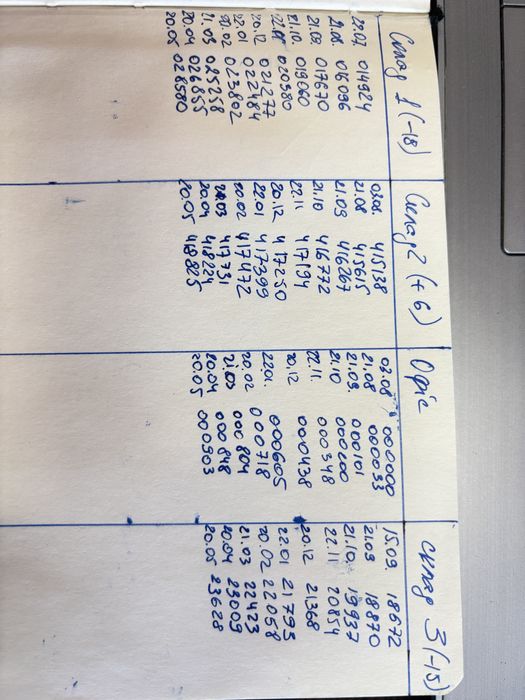 Склад 1 (-18)
22.07 014924
21.08. 016096
21.09 017670
21.10 019060
020380
20.12 021277
22.01 022484
20.02 023802
21.03 025258
20.04 026855
20.05 028580
Склад 2 (+6)
03.08. 415138
21.08 415615
21.09 416267
21.10 416772
22.11 417194
20.12 417250
22.01 417399
20.02 417472
21.03 417731
20.04 418224
20.05 418825
Офіс
02.08 000000
21.08 000033
21.09. 000101
21.10 000200
22.11. 000348
20.12 000438
22.01 000605
20.02 000718
21.03 000804
20.04 000848
20.05 000903
склад 3 (-15)
15.09. 18672
21.09 18870
21.10 19937
22.11 20854
20.12 21368
22.01 21795
20.02 22058
21.03 22423
20.04 23009
20.05 23628